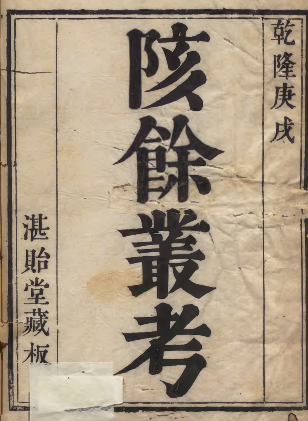 乾隆庚戌
陔餘叢考
湛貽堂藏板